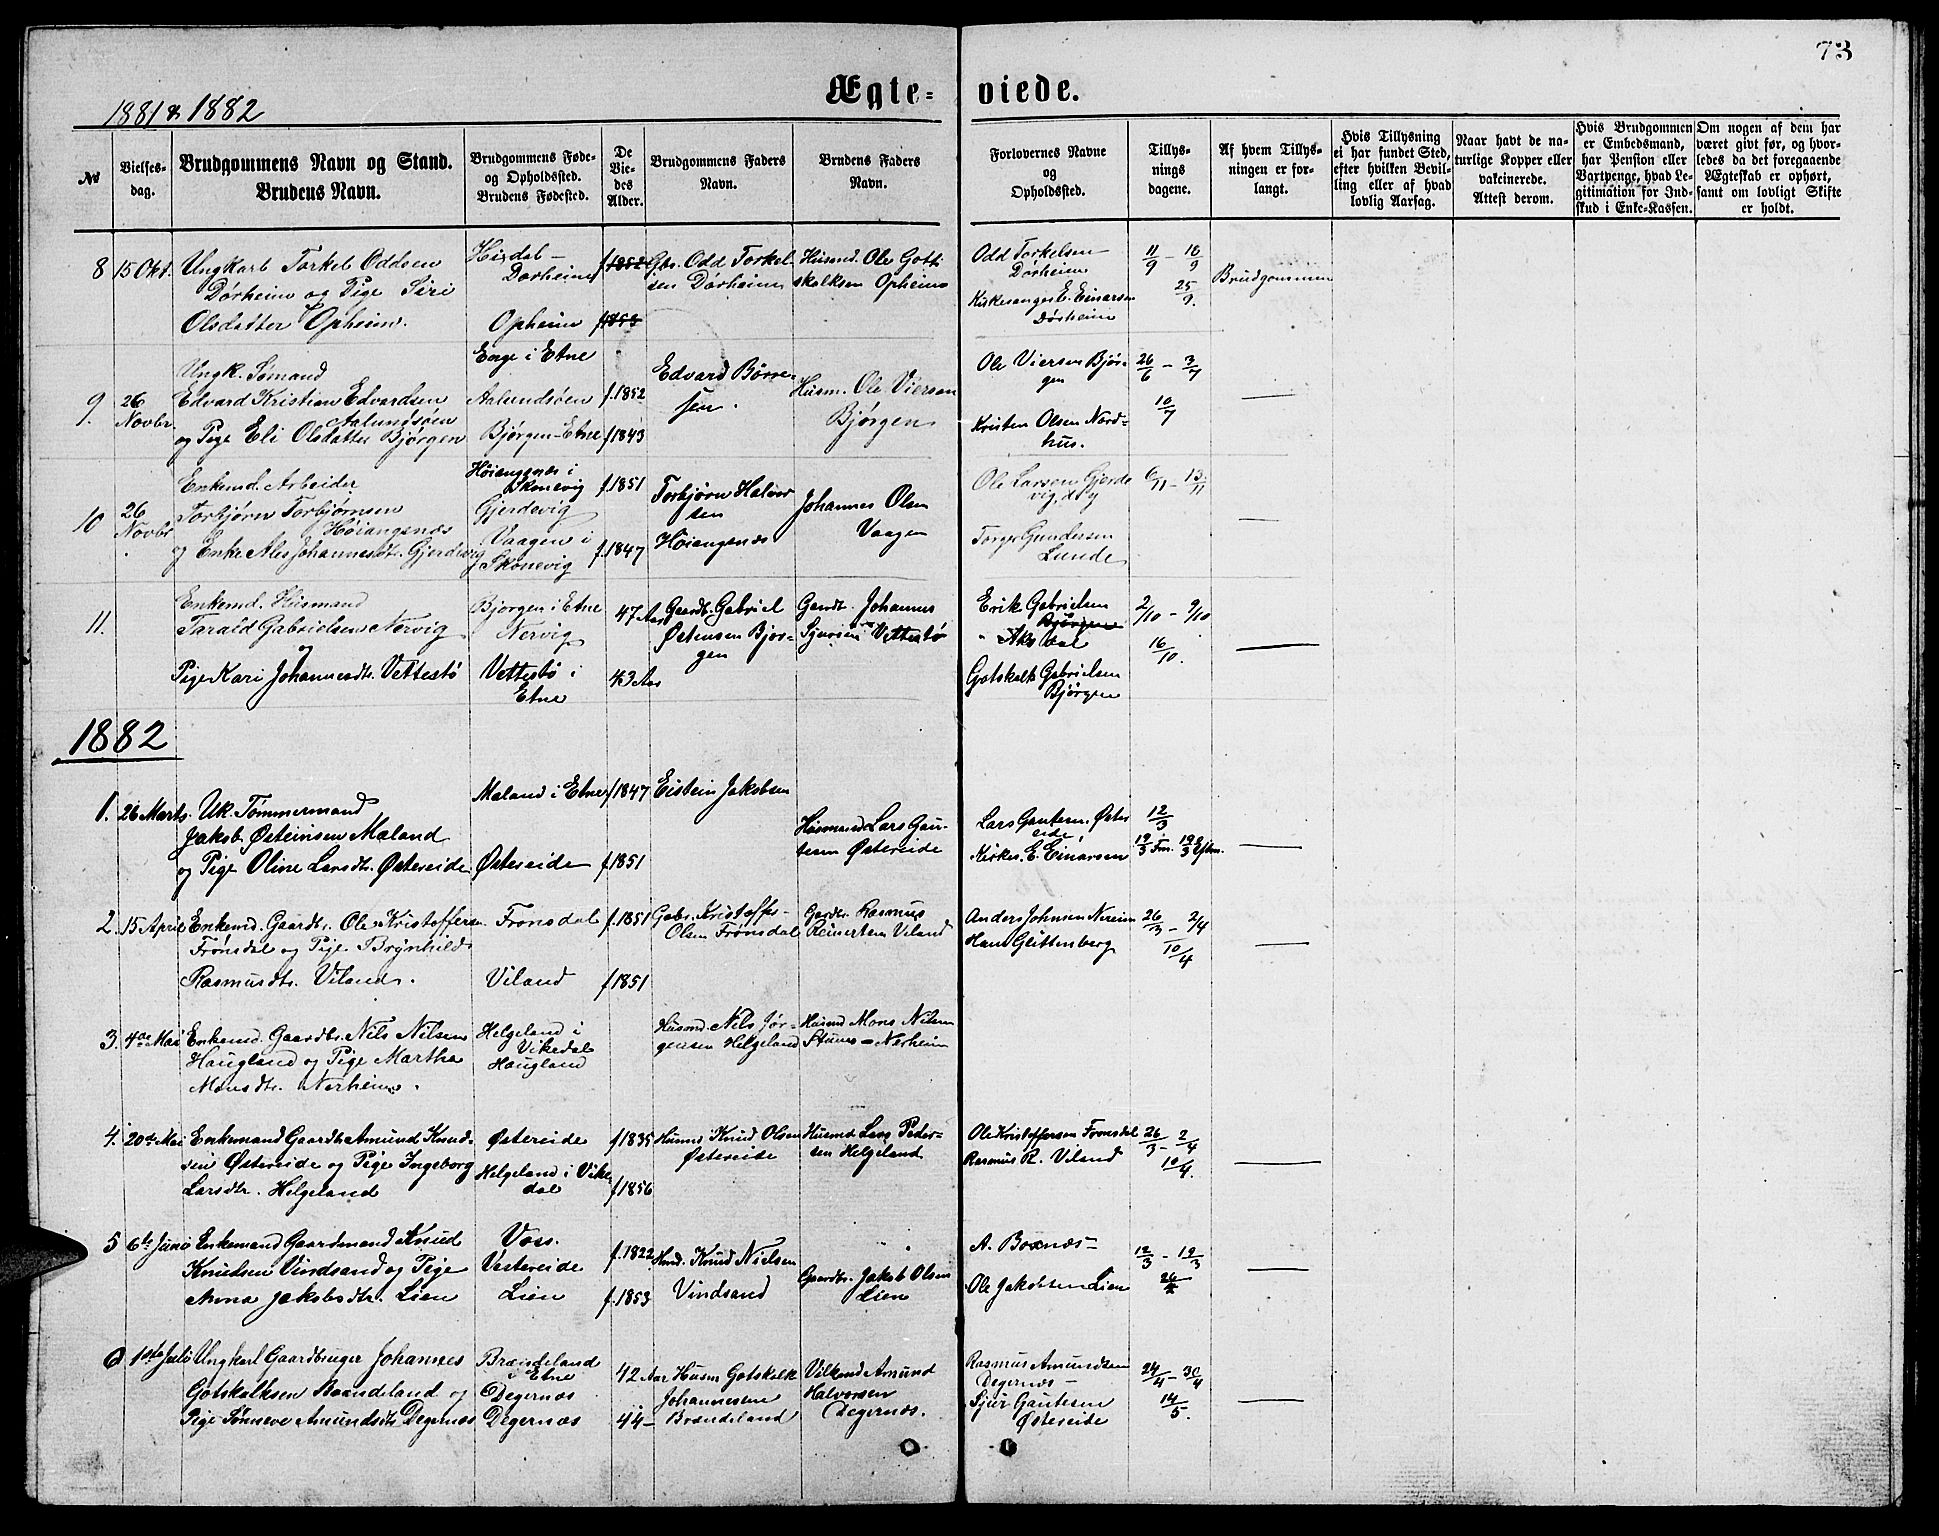 73
Ægte-viede.
1881 & 1882
№
Vielses-
dag.
Brudgommens Navn og Stand.
Brudens Navn.
Brudgommens Føde-
og Opholdssted.
Brudens Fødested.
De
Vie-
des
Alder.
Brudgommens Faders
Navn.
Brudens Faders
Navn.
Forlovernes Navne
og
Opholdssted.
Tillys-
nings
dagene.
Af hvem Tillys-
ningen er for-
langt.
Hvis Tillysning
ei har fundet Sted,
efter hvilken Bevil-
ling eller af hvad
lovlig Aarsag.
Naar havt de na-
turlige Kopper eller
vakcinerede.
Attest derom.
Hvis Brudgommen
er Embedsmand,
har Pension eller
Vartpenge, hvad Le-
gitimation for Ind-
skud i Enke-Kassen.
Om nogen af dem har
været givt før, og hvor-
ledes da det foregaaende
Ægteskab er ophørt,
samt om lovligt Skifte
er holdt.
8
15 Okt.
Ungkarl Torkel Oddsen
Dørheim og Pige Siri
Olsdatter Opheim.
Dørheim
Opheim
f1852
f1853
Gbr. Odd Torkel-
sen Dørheim
Husmd. Ole Gott-
skalksen Opheim
Odd Torkelsen
Dørheim
Kirkesanger E. Einarsen
Dørheim
11/9 - 18/9
25/9.
Brudgommen
9.
26
Novbr.
Ungk. Sømand
Edvard Kristian Edvardsen
Aalundsøen
og Pige Eli Olsdatter Bjørgen
Enge i Etne
Aalundsøen
Bjørgen-Etne
f.1852
f1843
Edvard Børre-
sen.
Husm. Ole Viersen
Bjørgen
Ole Viersen Bjør-
gen
Kristen Olsen Nord-
hus.
26/6 - 3/7
10/7
10
26
Novbr.
Enkemd. Arbeider
Torbjørn Torbjørnsen
Høiangsnæs
og Enke Ales Johannesdtr. Gjerdevig
Høiangsnæs i
Skonevig
Gjerdevig
Vaagen i
Skonevig
f.1851
f.1847
Torbjørn Halvor
sen
Høiangsnæs
Johannes Olsen
Vaagen
Ole Larsen Gjerde
vig
Torger Gundersen
Lunde
6/11 - 13/11
11.
Enkemd. Husmand
Tarald Gabrielsen Nervig
og
Pige Kari Johannesdtr. Vettestø
Bjørgen i Etne
Nervig
Vettestø i
Etne
47 Aar
43 Aar
Gaardb. Gabriel
Østensen Bjør-
gen
Gaardb. Johannes
Sjursen Vettestø
Erik Gabrielsen
Bjørgen
Aksdal
Gotskalk Gabrielsen
Bjørgen
2/10 - 9/10
16/10.
1882
1.
26 Marts.
Uk. Tømmermand
Jakob Østeinsen Maland
og Pige Oline Larsdtr. Østereide
Maland i Etne
Østereide
f1847
f1851
Eistein Jakobsen
Husmand Lars Gau-
tesen Østereide
Lars Gautesen Øster
eide
Kirkes. E. Einarsen
12/3
19/3 Fm. 19/3 Eftm.
2.
15 April
Enkemd. Gaardbr. Ole Kristoffersen
Frønsdal og Pige Brynhild
Rasmusdtr. Viland.
Frønsdal
Viland
f.1851
f1851
Gabr. Kristoffer
Olsen Frønsdal
Gardbr. Rasmus
Reinertsen Viland
Anders Johnsen Nereim
Hans Glittenberg
26/3 - 2/4
10/4
3.
4de Mai
Enkemd. Gaardbr. Nils Nilsen
Haugland og Pige Martha
Monsdtr. Nerheim.
Helgeland i
Vikedal
Haugland
Husmd. Nils Jør-
gensen Helgeland
Husmd Mons Nilsen
Nerheim
4.
20de Mai
Enkemand Gaardbr. Amund Knud-
sen Østereide og Pige Ingeborg
Larsdtr. Helgeland
Østereide
Helgeland i Vike
dal
f1835
f1856
Husmd Knud Olsen
Østereide
Husmd Lars Peder-
sen Helgeland
Ole Kristoffersen Frønsdal
Rasmus R. Viland
26/3 - 2/4
10/4.
5
6te Juni
Enkemand Gaardmand Knud
Knudsen Vindsand og Pige
Anna Jakobsdtr. Lien
Voss.
Vestereide
Lien
f.1822
f.1853
Husmd. Knud Nielsen
Vindsand
Gaardbr. Jakob Olsen
Lien
A. Boxnæs
Ole Jakobsen Lien
12/3 - 19/3
26/3
6
1ste Juli
Ungkarl Gaardbruger Johannes
Gotskalksen Brændeland og
Pige Sønneve Amundsdtr. Degernæs
Brændeland
i Etne
Degernæs
Degernæs
42 Aar
44 -
Husm Gotskalk
Johannesen
Brændeland
Amund
Halvorsen
Degernæs.
Rasmus Amundsen
Degernæs
Sjur Gautesen
Østereide
24/4 - 30/4
14/5.